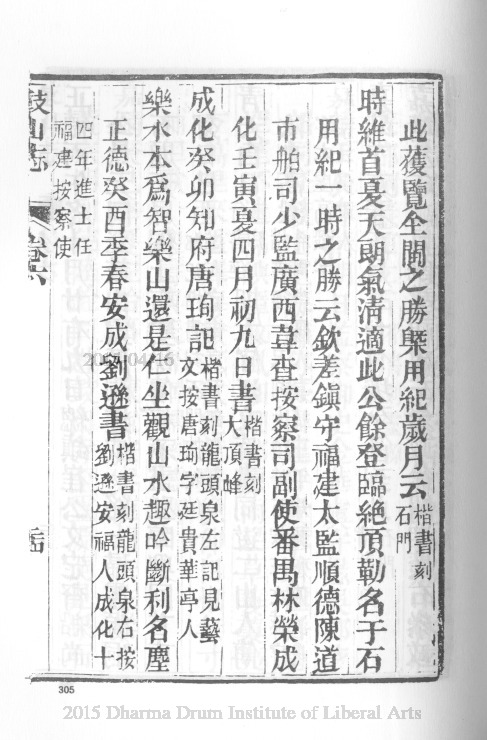 此獲覽全閩之勝槩用紀歲月云楷書刻石門
時維首夏天朗氣清適此公餘登臨絶頂勒名于石
用紀一時之勝云欽差鎮守福建太監順德陳道
市舶司少監廣西韋查按察司副使番禺林榮成
化壬寅夏四月初九日書楷書刻大頂峰
成化癸卯知府唐珣記楷書刻龍頭泉左記見藝文按唐珣字廷貴華亭人
樂水本爲智樂山還是仁坐觀山水趣吟斷利名塵
正德癸酉季春安成劉遜書楷書刻龍頭泉右按劉遜安福人成化十
四年進士任福建按察使
鼓山志
卷六
305
2015 Dharma Drum Institute of Liberal Arts